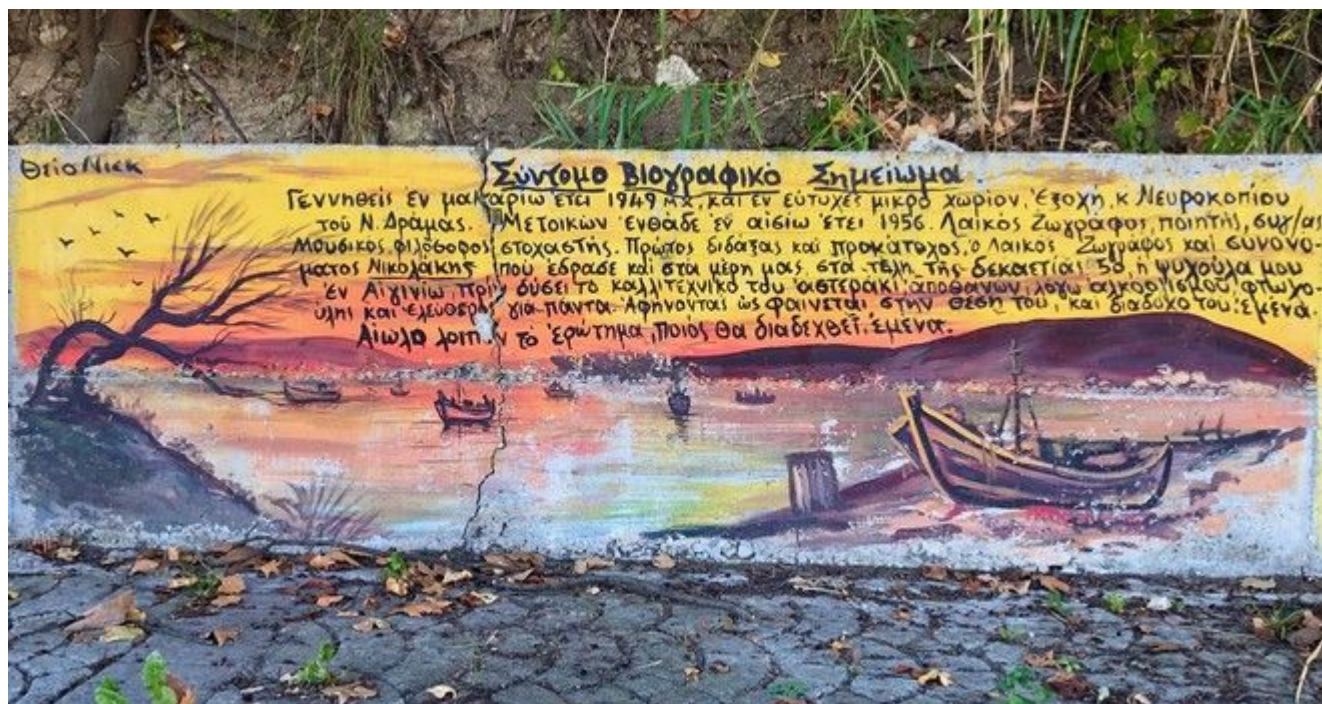 ΘείοΝικκ
Σύντομο Βιογραφικό Σημείωμα.
Γεννηθείς ἐν μακαρίω ἔτει 1949 μ.χ. καί ἐν εὐτυχές μικρό χωρίον, Ἐξοχή κ Νευροκοπίου
τοῦ Ν. Δράμας. Μετοικών ἐνθάδε ἐν αἰσίω ἔτει 1956. Λαϊκός Ζωγράφος, ποιητής, συγ/ας
Μουσικός φιλόσοφος στοχαστής. Πρῶτος διδάξας καί προκάτοχος, ὁ Λαϊκός Ζωγράφος καί συνονο-
ματος Νικολάκης πού ἔδρασε καί στά μέρη μας, στά τέλη τῆς δεκαετίας 50, ἡ ψυχούλα μου
ἐν Αἰγινίω, πρίν δύσει τό καλλιτεχνικό του ἀστεράκι ἀποθανών, λόγω ἀλκοολισμοῦ, φτωχο-
ύλης καί ἐλεύθερος γιά πάντα. Ἀφήνοντας ὡς φαίνεται στήν θέση του, καί διάδοχο του: ἐμένα.
Αἰωλο λοιπόν τό ἐρώτημα, ποιός θά διαδεχθεῖ, ἐμένα.